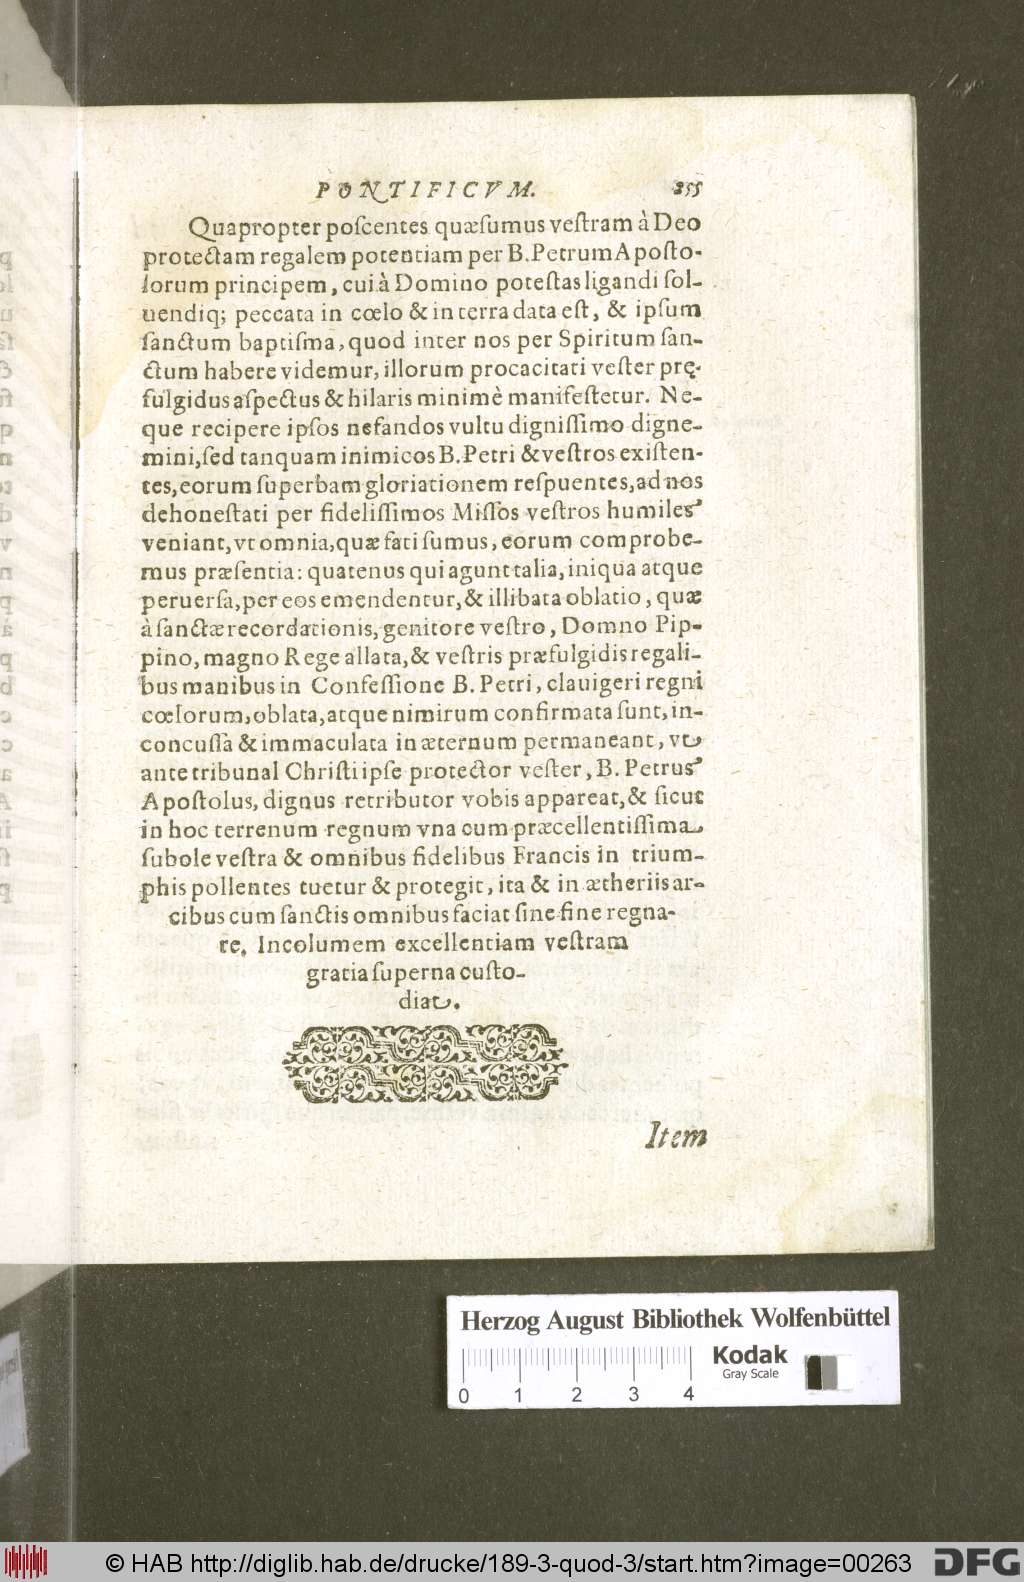 PONTIFICVM. 255
Quapropter poſcentes quæſumus veſtram à Deo
protectam regalem potentiam per B. Petrum Apoſto-
lorum principem, cui à Domino poteſtas ligandi ſol-
uendiq; peccata in cœlo & in terra data eſt, & ipſum
ſanctum baptiſma, quod inter nos per Spiritum ſan-
ctum habere videmur, illorum procacitati veſter prę-
fulgidus aſpectus & hilaris minimè manifeſtetur. Ne-
que recipere ipſos nefandos vultu digniſſimo digne-
mini, ſed tanquam inimicos B. Petri & veſtros exiſten-
tes, eorum ſuperbam gloriationem reſpuentes, ad nos
dehoneſtati per fideliſſimos Miſſos veſtros humiles
veniant, vt omnia, quæ fati ſumus, eorum comprobe-
mus præſentia: quatenus qui agunt talia, iniqua atque
peruerſa, per eos emendentur, & illibata oblatio, quæ
à ſanctæ recordationis, genitore veſtro, Domno Pip-
pino, magno Rege allata, & veſtris præfulgidis regali-
bus manibus in Confeſſione B. Petri, clauigeri regni
cœlorum, oblata, atque nimirum confirmata ſunt, in-
concuſſa & immaculata in æternum permaneant, vt
ante tribunal Chriſti ipſe protector veſter, B. Petrus
Apoſtolus, dignus retributor vobis appareat, & ſicut
in hoc terrenum regnum vna cum præcellentiſſima
ſubole veſtra & omnibus fidelibus Francis in trium-
phis pollentes tuetur & protegit, ita & in ætheriis ar-
cibus cum ſanctis omnibus faciat ſine fine regna-
re. Incolumem excellentiam veſtram
gratia ſuperna cuſto-
diat.
Item
Herzog August Bibliothek Wolfenbüttel
Kodak
Gray Scale
0 1 2 3 4
© HAB http://diglib.hab.de/drucke/189-3-quod-3/start.htm?image=00263
DFG